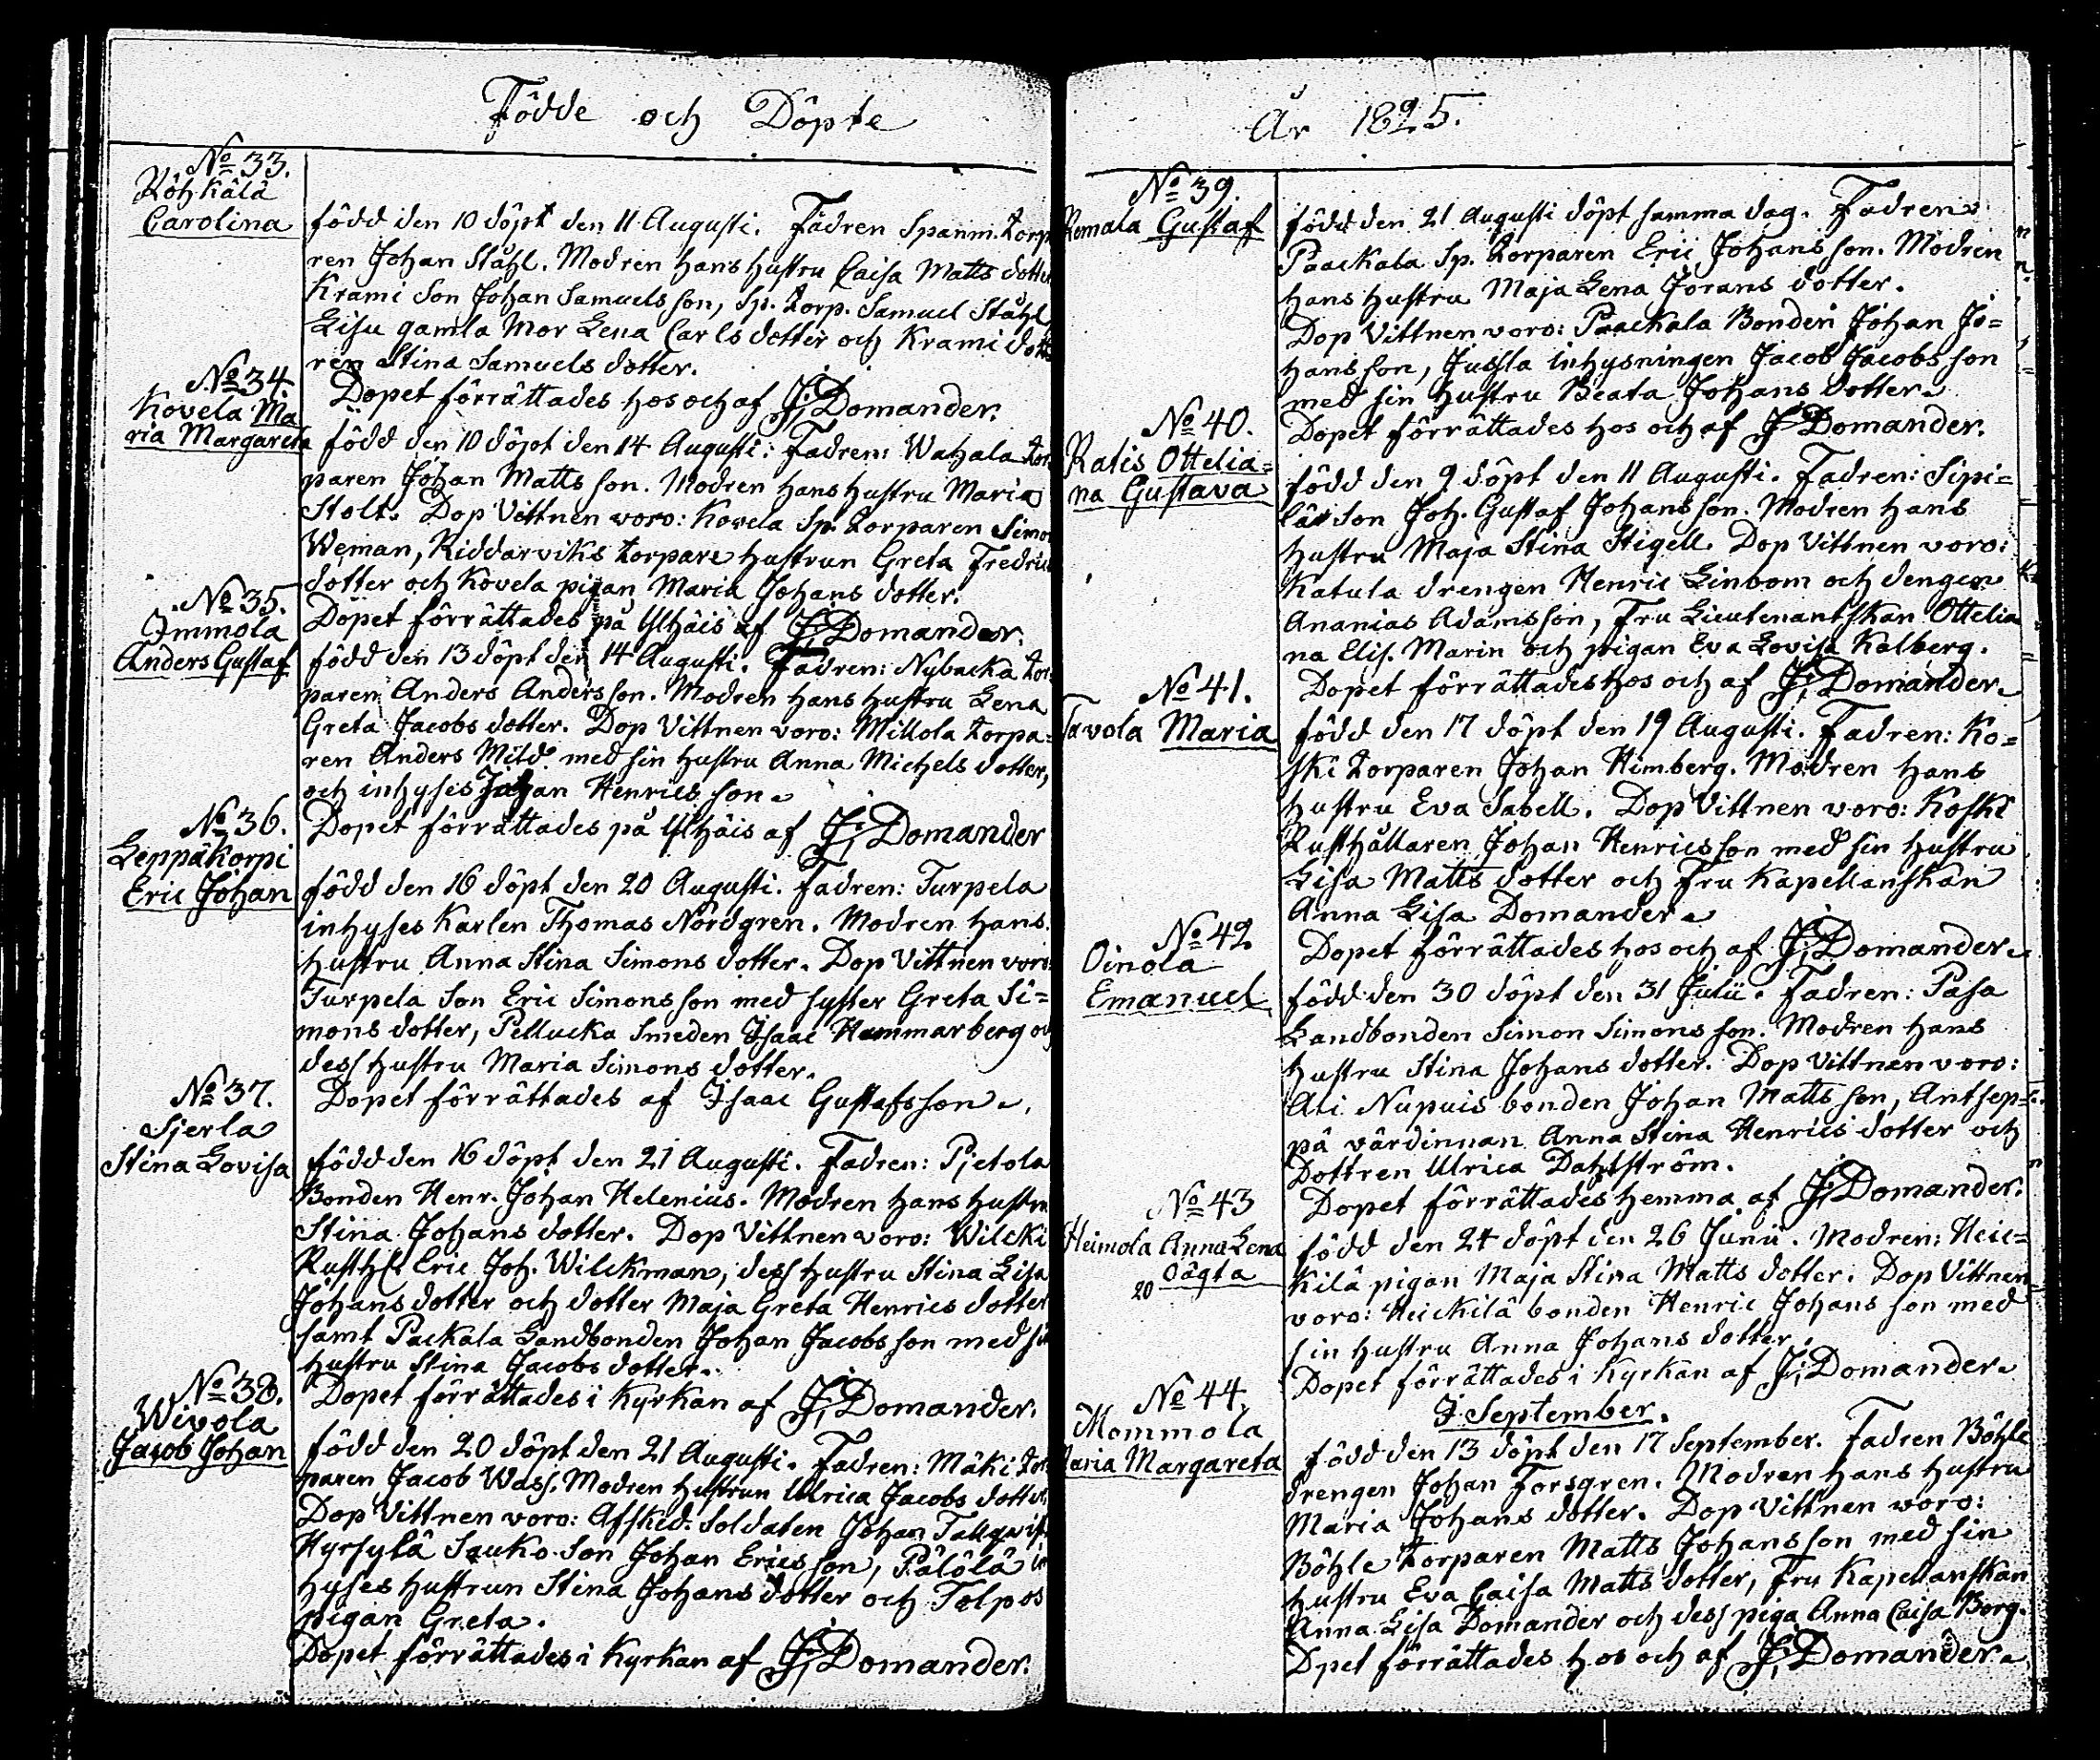 Födde och Döpte
No 33.
Köhkälä
Carolina
född den 10 döpt den 11 Augusti. Fadren Spanm. Torp
ren Johan Ståhl. Modren hans hustru Caisa Matts dotter
Krami Son Johan Samuelsson, Sp. Torp. Samuel Ståhl
Lisu gamla Mor Lena Carlsdotter och Krami dott
ren Stina Samuels dotter.
Dopet förrättades hos och af J; Domander.
No 34.
Kovela Ma
ria Margareta
född den 10 döpt den 14 Augusti: Fadren: Wahala Tor
paren Johan Matts son. Modren hans hustru Maria
Stolt. Dop Vittnen voro: Kovela Sp. Torparen Simon
Weman, Kiddarviks torpare hustrun Greta Fredrics
dotter och Kovela pigan Maria Johans dotter.
Dopet förrättades på Ylhäis af J; Domander.
No 35.
Immola
Anders Gustaf
född den 13 döpt den 14 Augusti. Fadren: Nybacka Tor
paren Anders Anders son. Modren hans hustru Lena
Greta Jacobs dotter. Dop Vittnen voro: Millola Torpa=
ren Anders Mild med sin hustru Anna Michels dotter,
och inhyses Johan Henrics son.
Dopet förrättades på Ylhäis af J; Domander
No 36.
Leppäkorpi
Eric Johan
född den 16 döpt den 20 Augusti. Fadren: Turpela
inhyses Karlen Thomas Nordgren. Modren hans
hustru Anna Stina Simons dotter. Dop Vittnen voro:
Turpela Son Eric Simonsson med syster Greta Si=
mons dotter, Pellucka Smeden Isaac Hammarberg och
dess hustru Maria Simons dotter.
Dopet förrättades af Isaac Gustafsson.
No 37.
Sjerla
Stina Lovisa
född den 16 döpt den 21 Augusti. Fadren: Pjetola
Bonden Henr. Johan Helenius. Modren hans hustru
Stina Johans dotter. Dop Vittnen voro: Wilcki
Rusth. Eric Joh. Wilckman, dess hustru Stina Lisa
Johans dotter och dotter Maja Greta Henrics dotter
samt Packala Landbonden Johan Jacobsson med sin
hustru Stina Jacobs dotter.
Dopet förrättades i Kyrkan af J; Domander.
No 38.
Wivola
Jacob Johan
född den 20 döpt den 21 Augusti. Fadren: Mäki Tor
paren Jacob Wass. Modren hustrun Ulrica Jacobs dotter,
Dop Vittnen voro: Afsked. Soldaten Johan Tallqwist
Hyrsylä Sauko Son Johan Erics son, Pälölä in
hyses hustrun Stina Johans dotter och Tolpos
pigan Greta.
Dopet förrättades i Kyrkan af J; Domander.
År 1825.
No 39.
Romala Gustaf
född den 21 Augusti döpt samma dag. Fadren
Paackala Sp. Torparen Eric Johansson. Modren
hans hustru Maja Lena Jörans dotter.
Dop Vittnen voro: Paackala Bonden Johan Jo=
hansson, Jussla inhysningen Jacob Jacobsson
med sin hustru Beata Johans dotter.
Dopet förrättades hos och af J Domander.
No 40.
Ratis Ottelia=
na Gustava
född den 9 döpt den 11 Augusti. Fadren: Sipi=
lä Son Joh. Gustaf Johansson. Modren hans
hustru Maja Stina Stigell. Dop Vittnen voro:
Katula drengen Henric Linbom och dengen
Ananias Adamsson, Fru Lieutenantskan Ottelia
na Elis. Marin och pigan Eva Lovisa Kalberg.
Dopet förrättades hos och af J; Domander.
No 41.
Tavola Maria
född den 17 döpt den 19 Augusti. Fadren: Ko=
ski Torparen Johan Himberg. Modren hans
hustru Eva Sabell. Dop Vittnen voro: Koski
Rusthållaren Johan Henricsson med sin hustru
Lisa Matts dotter och Fru Kapellanskan
Anna Lisa Domander.
Dopet förrättades hos och af J; Domander.
No 42
Oinola
Emanuel
född den 30 döpt den 31 Julii. Fadren: Pasa
Landbonden Simon Simonsson. Modren hans
hustru Stina Johans dotter. Dop Vittnen voro:
Ali Nupuis bonden Johan Mattsson, Antsep=
pä värdinnan Anna Stina Henrics dotter och
Dottren Ulrica Dahlström.
Dopet förrättades hemma af J; Domander.
No 43
Heimola Anna Lena
oägta
20
född den 24 döpt den 26 Junii. Modren: Heic=
kilä pigan Maja Stina Matts dotter. Dop Vittnen
voro: Heickilä bonden Henric Johans son med
sin hustru Anna Johans dotter.
Dopet förrättades i Kyrkan af J; Domander.
I September.
No 44.
Mommola
Maria Margareta
född den 13 döpt den 17 September. Fadren Böhle
drengen Johan Forsgren. Modren hans hustru
Maria Johans dotter. Dop Vittnen voro:
Böhle Torparen Matts Johansson med sin
hustru Eva Caisa Matts dotter, Fru Kapellanskan
Anna Lisa Domander och dess piga Anna Caisa Borg.
Dpet förrättades hos och af J; Domander.